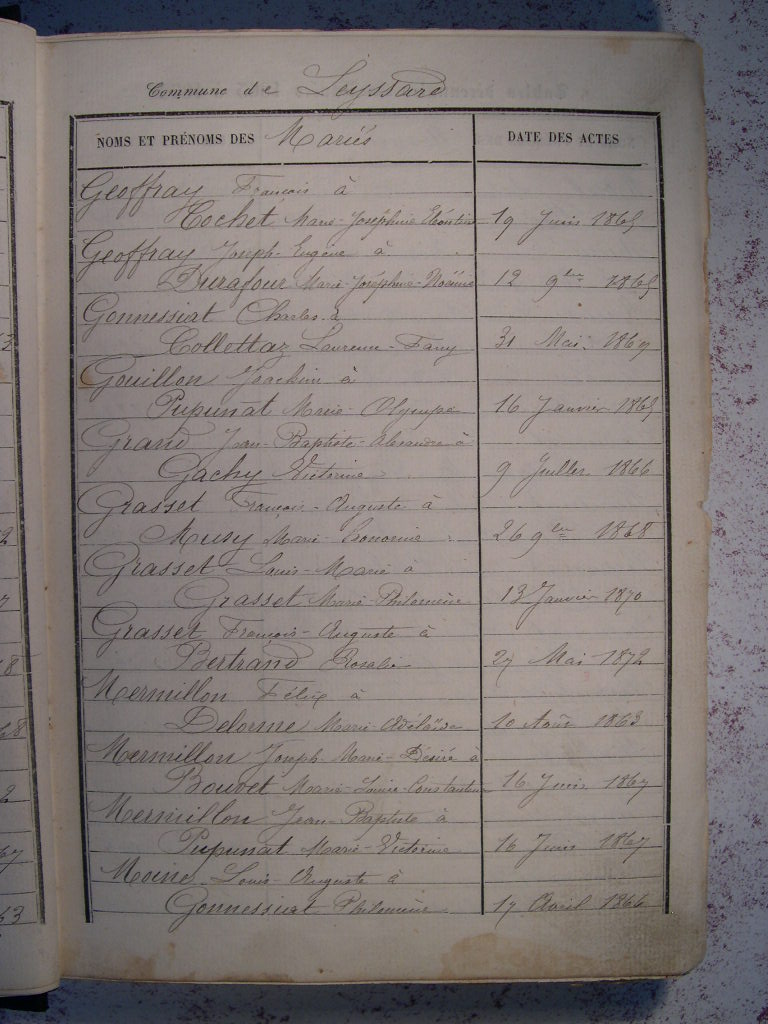 Commune de Leyssard
NOMS ET PRÉNOMS DES Mariés
DATE DES ACTES
Geoffray François à
Hochet Marie-Joséphine 19 Juin 1865
Geoffray Joseph Eugène à
Durafour Marie-Joséphine-Noémie 12 9bre 1865
Gonnessiat Charles à
Collettaz Laurence-Fany 31 Mai 1869
Gouillon Joachim à
Pupunat Marie-Olympe 16 Janvier 1865
Grand Jean-Baptiste-Alexandre à
Gachy Victorine 9 Juillet 1866
Grasset François-Auguste à
Musy Marie 26 9bre 1868
Grasset Louis-Marie à
Grasset Marie-Philomène 13 Janvier 1870
Grasset François-Auguste à
Bertrand Rosalie 27 Mai 1872
Mermillon Félix à
Delorme Marie-Adélaïde 10 Août 1863
Mermillon Joseph-Marie-Désiré à
Bouvet Marie-Louise-Constantine 16 Juin 1867
Mermillon Jean-Baptiste à
Pupunat Marie-Victorine 16 Juin 1867
Moine Louis-Auguste à
Gonnessiat Philomène 17 Avril 1866